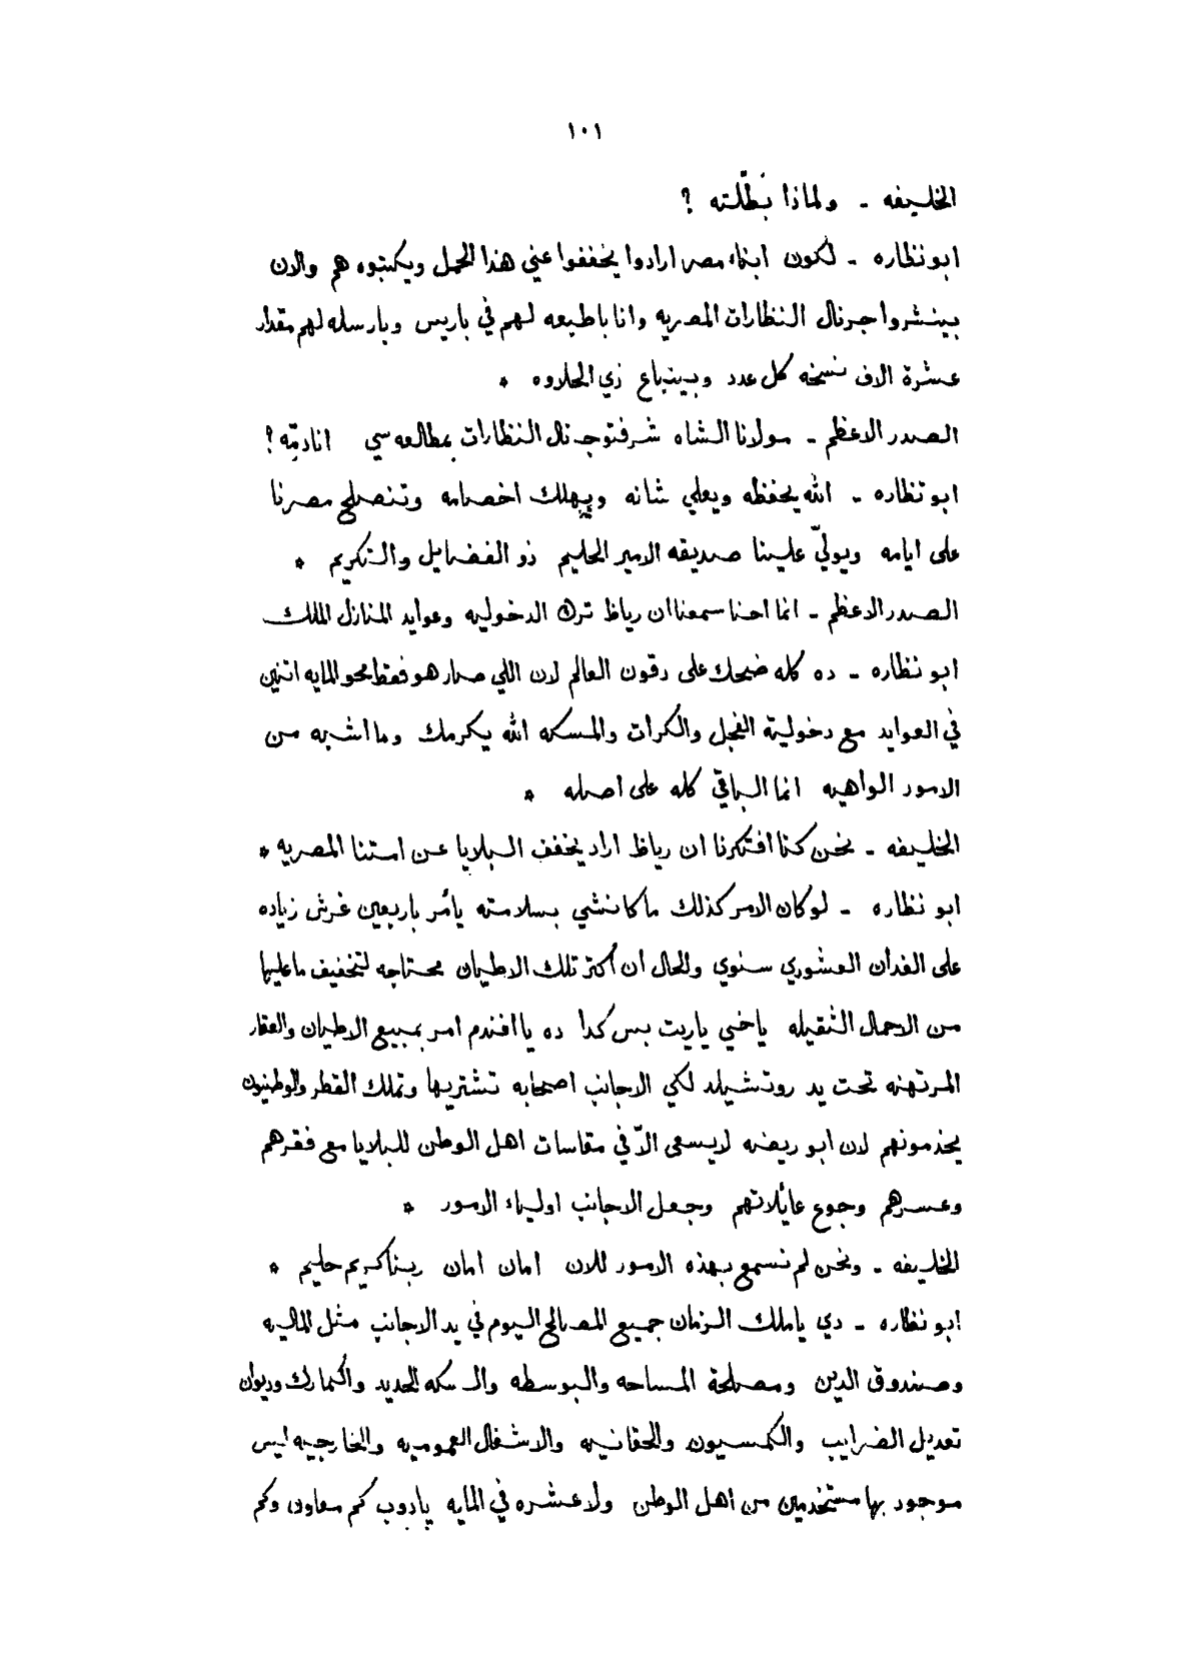 ١٠١
الخليفه - ولماذا بَطّلته ؟
ابو نظاره - لكون ابناء مصر ارادوا يخففوا عني هذا الحمل ويكتبوه هم والان
بينشروا جرنال النظارات المصريه وانا باطبعه لهم في باريس وبارسله لهم مقدار
عشرة الاف نسخه كل عدد وبينباع زي الحلاوه *
الصدر الاعظم - مولانا الشاه شرفتو جرنال النظارات بمطالعه سي
ابو نظاره - الله يحفظه ويعلي شانه ويهلك اخصامه وتنصلح مصرنا
على ايامه ويولّي علينا صديقه الامير الحليم ذو الفضايل والتكريم *
الصدر الاعظم - انما احنا سمعنا ان رياظ ترك الدخوليه وعوايد المنازل الملك
ابو نظاره - ده كله ضحك على دقون العالم لان اللي صار هو فقط محو المايه اتنين
في العوايد مع دخولية الفجل والكرات والمسكه الله يكرمك وما اشبه من
الامور الواهيه انما الباقي كله على اصله *
الخليفه - نحن كنا افتكرنا ان رياظ اراد يخفف البلايا عن امتنا المصريه *
ابو نظاره - لو كان الامر كذلك ما كانشي بسلامته يأمر باربعين غرش زياده
على الفدان العشوري سنوي والحال ان أكتر تلك الاطيان محتاجه لتخفيف ما عليها
من الاحمال الثقيله ياخي ياريت بس كدا ده يا افندم امر بمبيع الاطيان والعقار
المرتهنه تحت يد روتشيلد لكي الاجانب اصحابه تشتريها وتملك القطر والوطنيون
يخدمونهم لان ابو ريضه لا يسعى الاّ في مقاسات اهل الوطن للبلايا مع فقرهم
وعسرهم وجوع عائلاتهم وجعل الاجانب اولياء الامور *
الخليفه - ونحن لم نسمع بهذه الامور للان امان امان ربنا كريم حليم *
ابو نظاره - دي يا ملك الزمان جميع المصالح اليوم في يد الاجانب مثل الماليه
وصندوق الدين ومصلحة المساحه والبوسطه والسكه الحديد والكمارك وديوان
تعديل الضرايب والكمسيون والحقانيه والاشغال العموميه والخارجيه ليس
موجود بها مستخدمين من اهل الوطن ولا عشره في المايه يادوب كم معاون وكم